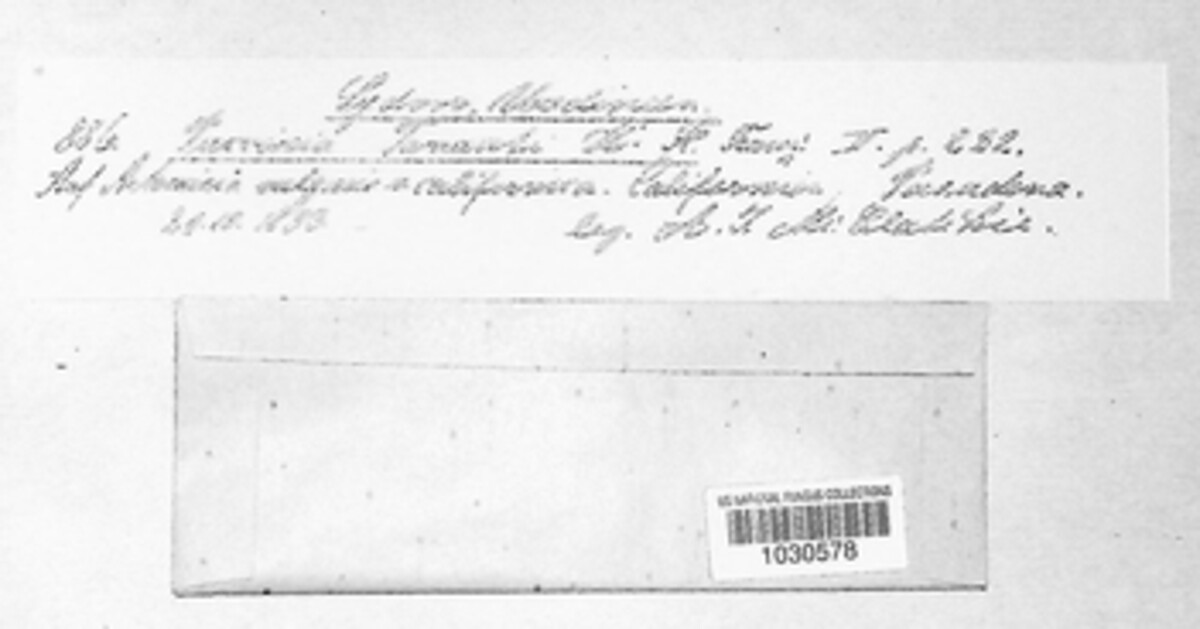 Sydow, Uredineen.
886. Puccinia Tanaceti DC. H. Fung. V. p. 232.
Auf Artemisia vulgaris v. californica. Californien, Pasadena.
1893 leg. A. J. Mc. Clatchie.
US NATIONAL FUNGUS COLLECTIONS
1030578